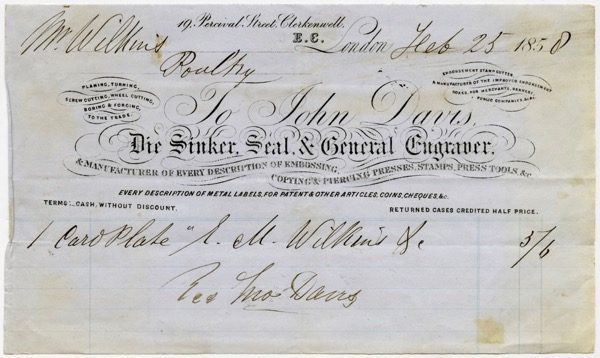 19, Percival Street, Clerkenwell.
E.C.
Mr Wilkins
London, Feb 25 1858
Poultry
PLANING, TURNING,
SCREW CUTTING, WHEEL CUTTING,
BORING & FORGING,
TO THE TRADE.
ENDORSEMENT STAMP CUTTER,
& MANUFACTURER OF THE IMPROVED ENDORSEMENT
BOXES, FOR MERCHANTS, BANKERS,
PUBLIC COMPANIES &c.
To John Davis,
Die Sinker, Seal, & General Engraver,
& MANUFACTURER OF EVERY DESCRIPTION OF EMBOSSING,
COPYING & PIERCING PRESSES, STAMPS, PRESS TOOLS, &c.
EVERY DESCRIPTION OF METAL LABELS, FOR PATENT & OTHER ARTICLES, COINS, CHEQUES, &c.
TERMS: CASH, WITHOUT DISCOUNT. RETURNED CASES CREDITED HALF PRICE.
1 Card Plate " E. M. Wilkins &c 5/6
Jno Davis